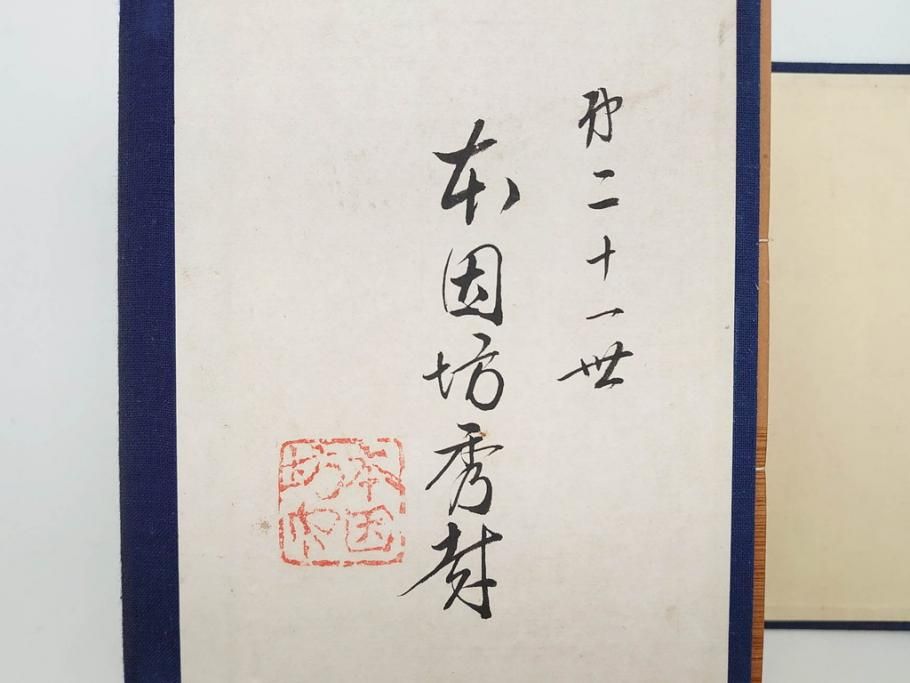 第二十一世
本因坊秀哉
本因
坊印